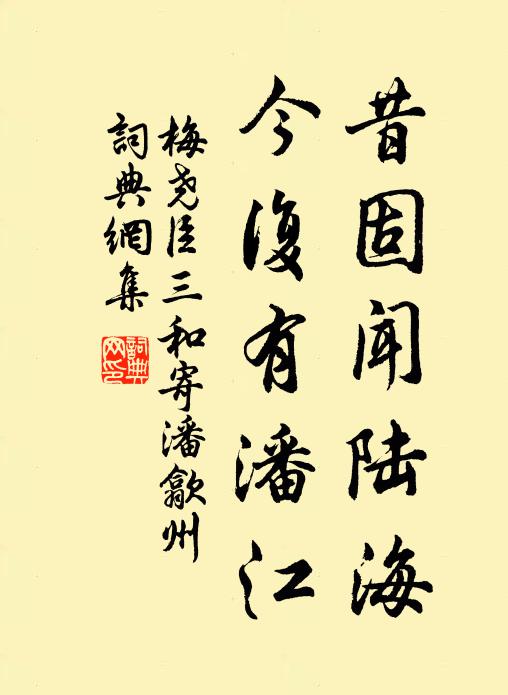 昔固闻陆海
今復有潘江
梅尧臣三和寄潘歙州
詞典網集
詞典网印